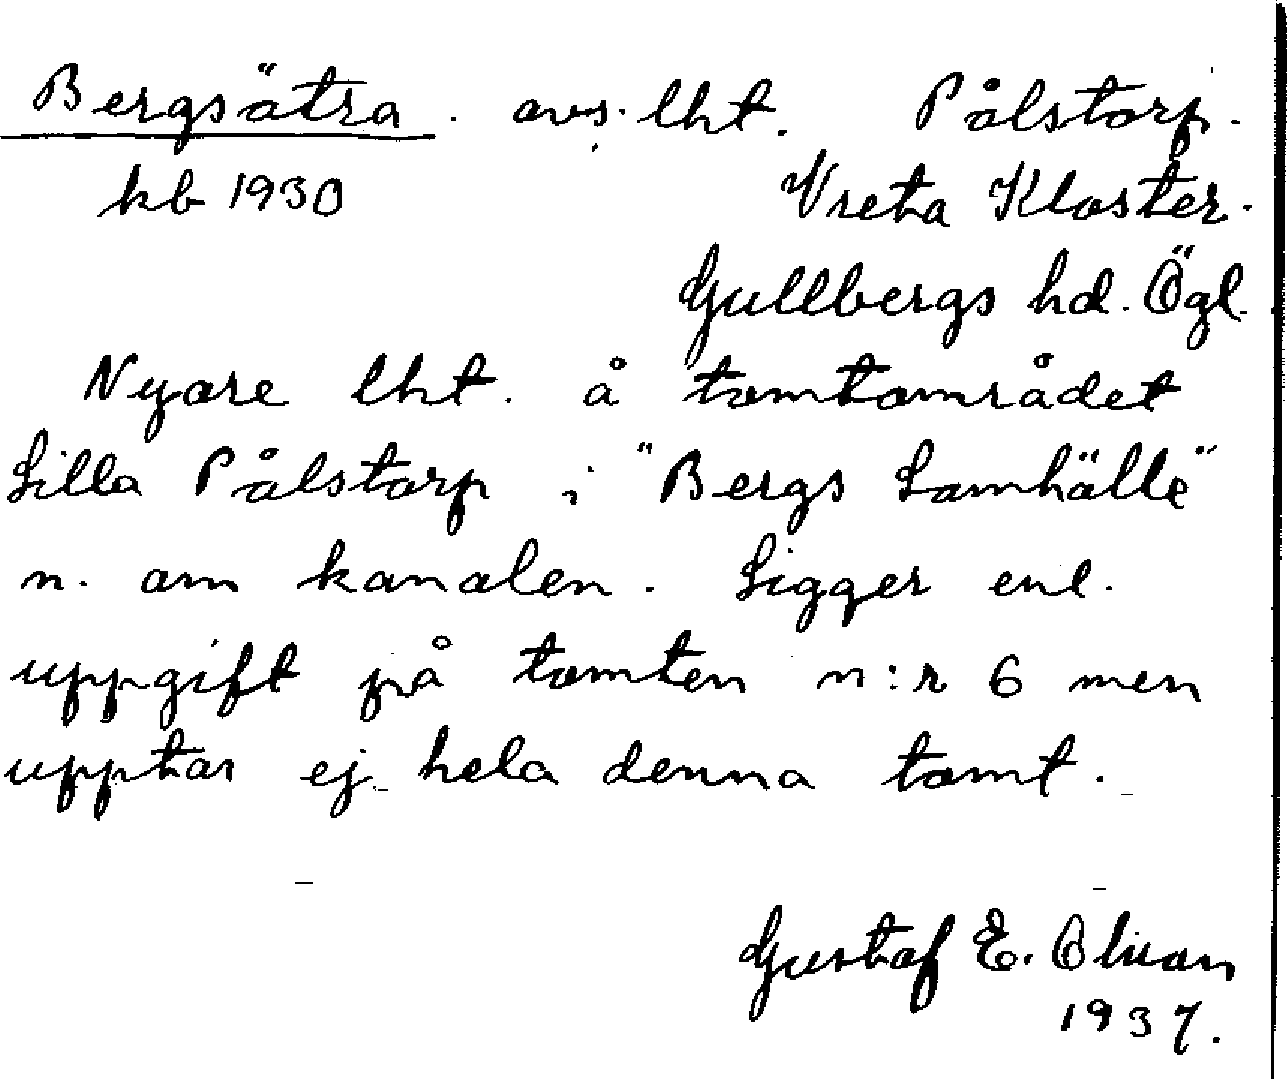 Bergsätra. avs. lht. Pålstorp.
kb 1930 Vreta Kloster.
Gullbergs hd. Ögl.
Nyare lht. å tomtområdet
Lilla Pålstorp i "Bergs Samhälle"
n. om kanalen. Ligger enl.
uppgift på tomten n:r 6 men
upptar ej hela denna tomt.
Gustaf E.
1937.